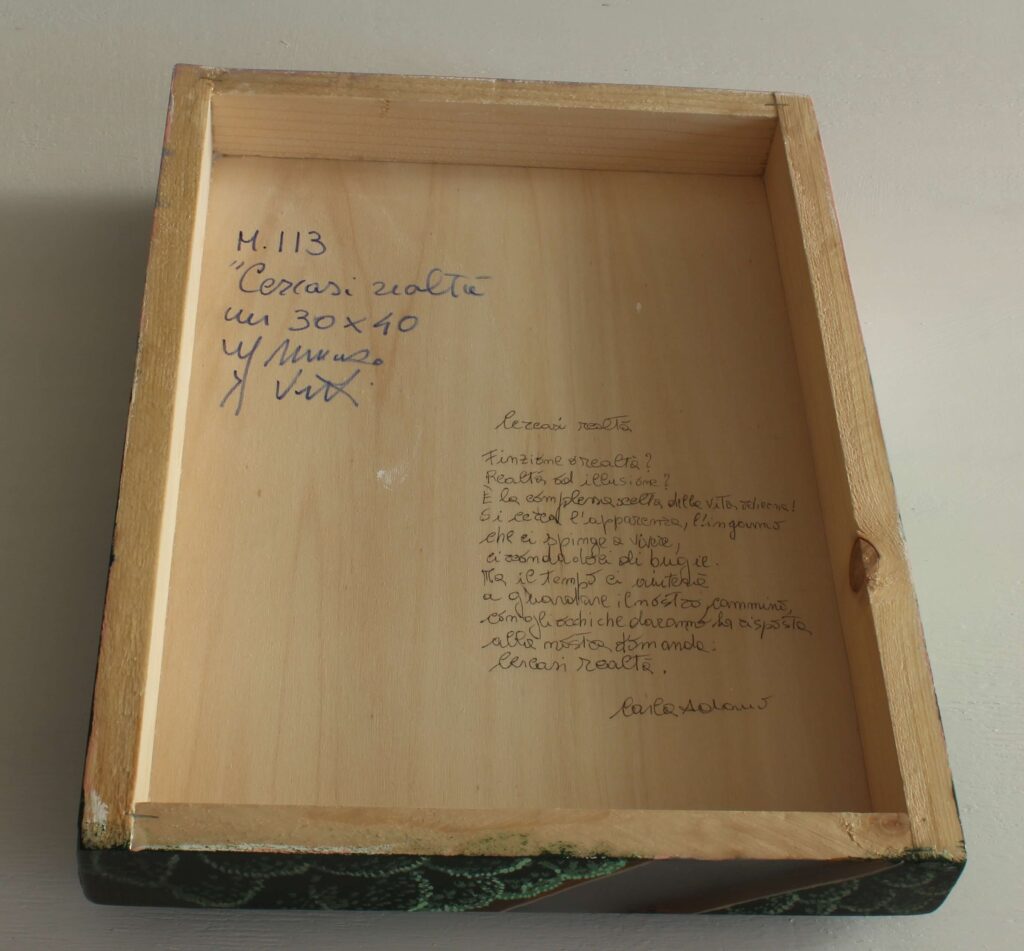 M. 113
"Cercasi realtà
cm 30x40
Cercasi realtà
Finzione o realtà?
Realtà od illusione?
È la complessa scelta della vita odierna!
Si cerca l'apparenza, l'inganno
che ci spinge a vivere,
circondandoci di bugie.
Ma il tempo ci aiuterà
a guardare il nostro cammino,
con gli occhi che daranno la risposta
alla nostra domanda:
Cercasi realtà.
Carla Adamo